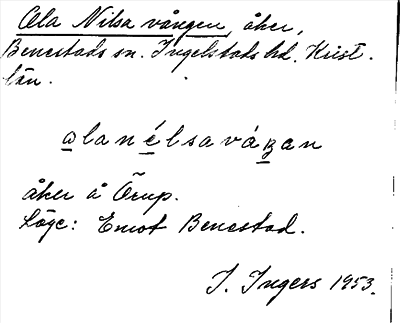 Ola Nilsa vången, åker,
Benestads sn. Ingelstads hd. Krist.
län.
ɷlanélsaváŋan
åker å Örup.
Läge: Emot Benestad.
I. Ingers 1953.